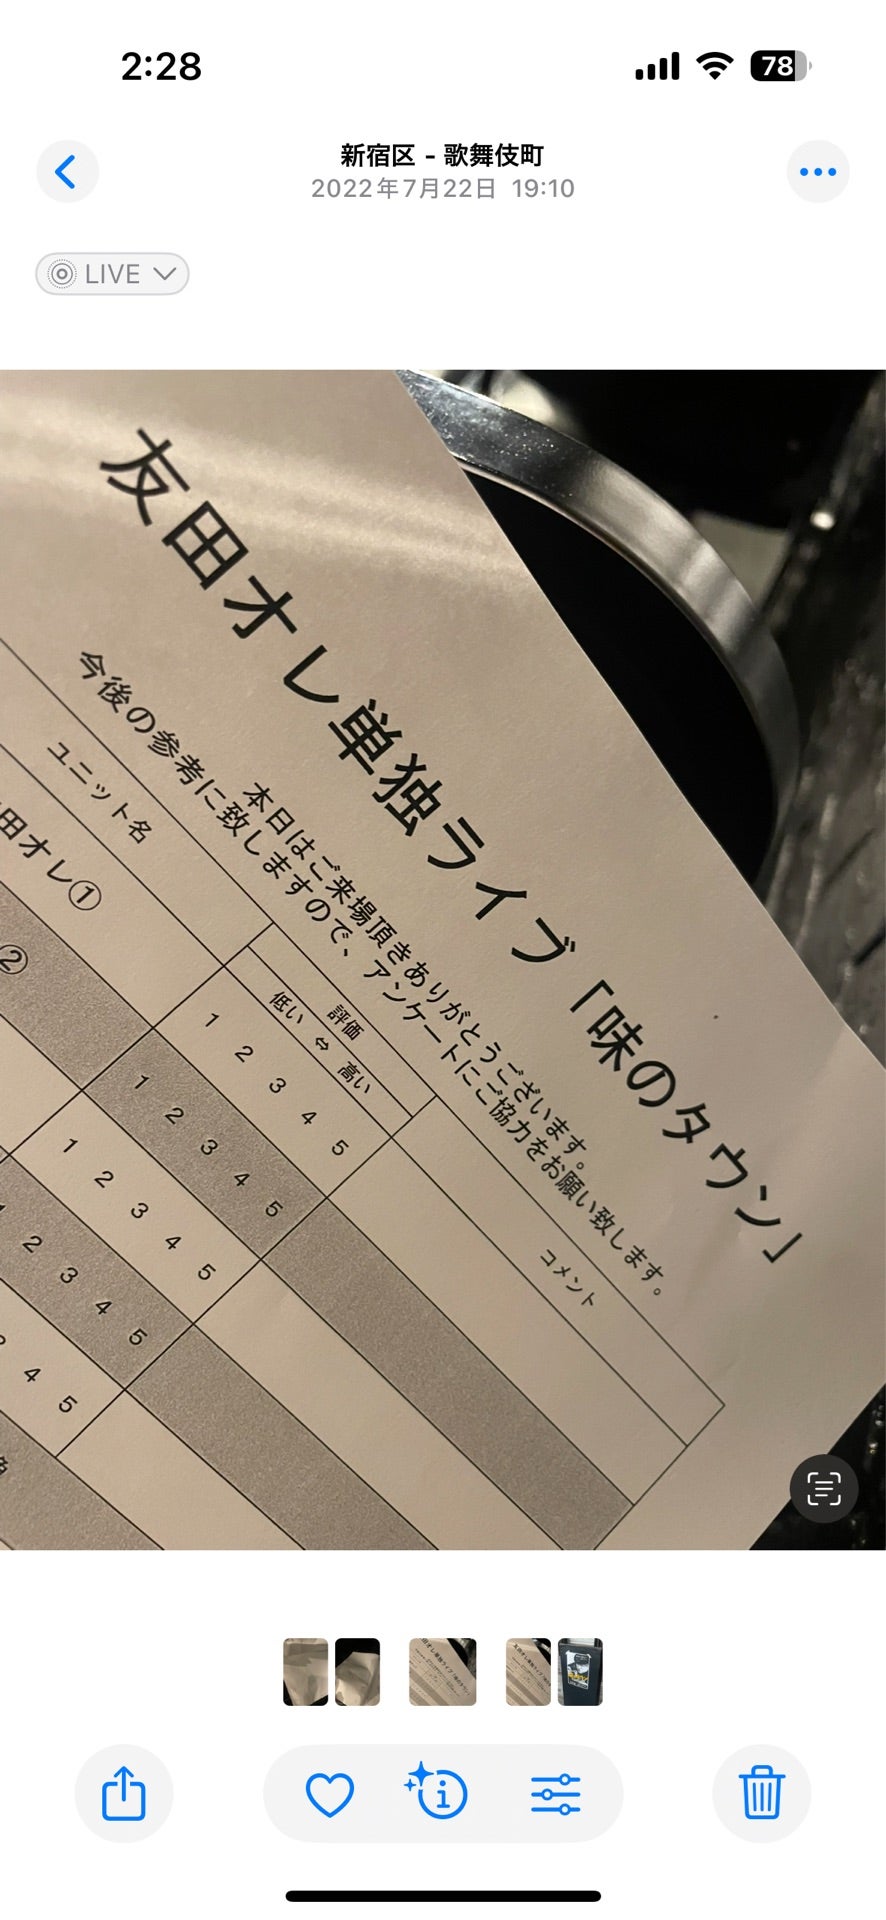 2:28
78
新宿区 - 歌舞伎町
2022年7月22日 19:10
LIVE
友田オレ単独ライブ「味のタウン」
本日はご来場頂きありがとうございます。
今後の参考に致しますので、アンケートにご協力をお願い致します。
ユニット名
評価
低い ⇔ 高い
コメント
田オレ①
1 2 3 4 5
②
1 2 3 4 5
1 2 3 4 5
2 3 4 5
4 5